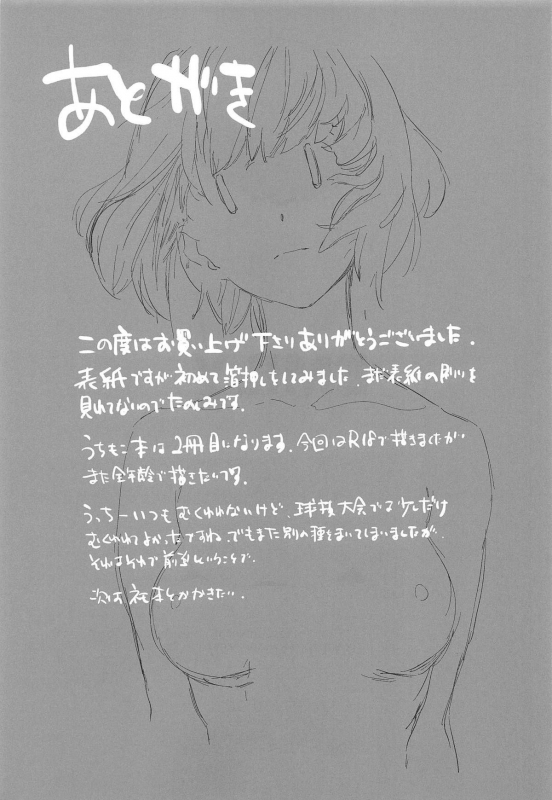 あとがき
この度はお買い上げ下さりありがとうございました.
表紙ですが初めて箔押しをしてみました.まだ表紙の刷りを
見れてないのでたのしみです.
うちもこ本は2冊目になります.今回はR18で描きましたが
また全年齢で描きたいです.
うっちーいつもむくわれないけど、球技大会で少しだけ
むくわれてよかったですね.でもまた別の種をまいてしまいましたが.
それはそれで前進ということで.
次は ネモ本とかかきたい.